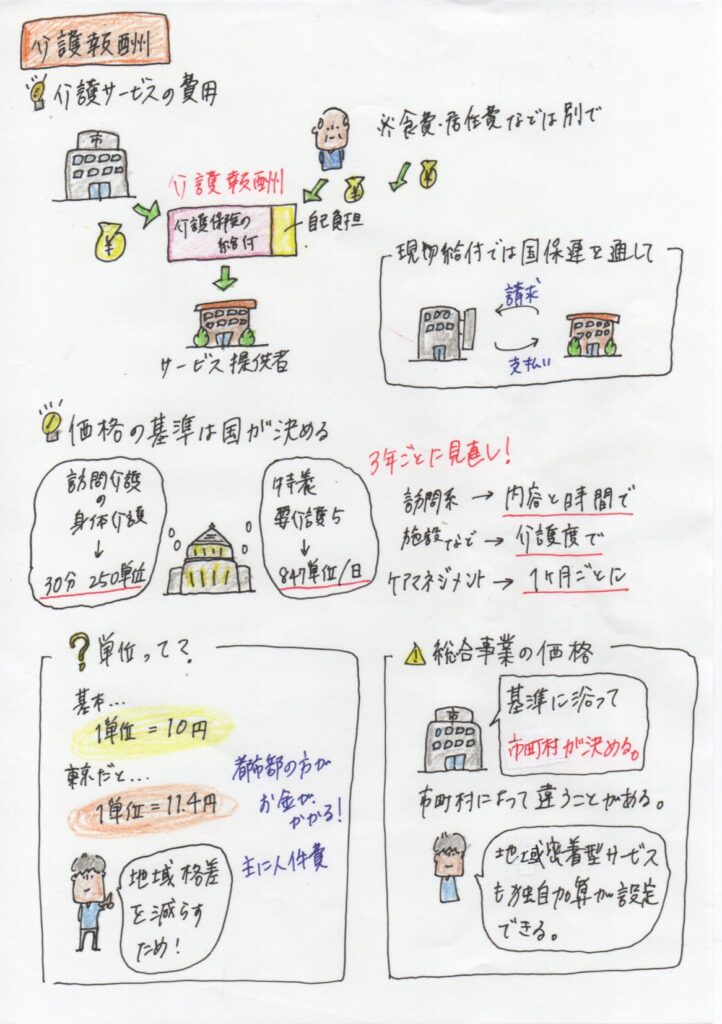 介護報酬
介護サービスの費用
市
※食費・居住費などは別で
介護報酬
¥
¥
¥
介護保険の
給付
自己負担
サービス提供者
現物給付では国保連を通して
請求
支払い
価格の基準は国が決める
訪問介護
の
身体介護
↓
30分 250単位
特養
要介護5
↓
847単位/日
3年ごとに見直し!
訪問系 → 内容と時間で
施設など → 介護度で
ケアマネジメント → 1ヶ月ごとに
?単位って?
基本…
1単位=10円
東京だと…
1単位=11.4円
都市部の方が
お金が
かかる!
主に人件費
地域格差
を減らす
ため!
総合事業の価格
市
基準に沿って
市町村が決める。
市町村によって違うことがある。
地域密着型サービス
も独自加算が設定
できる。